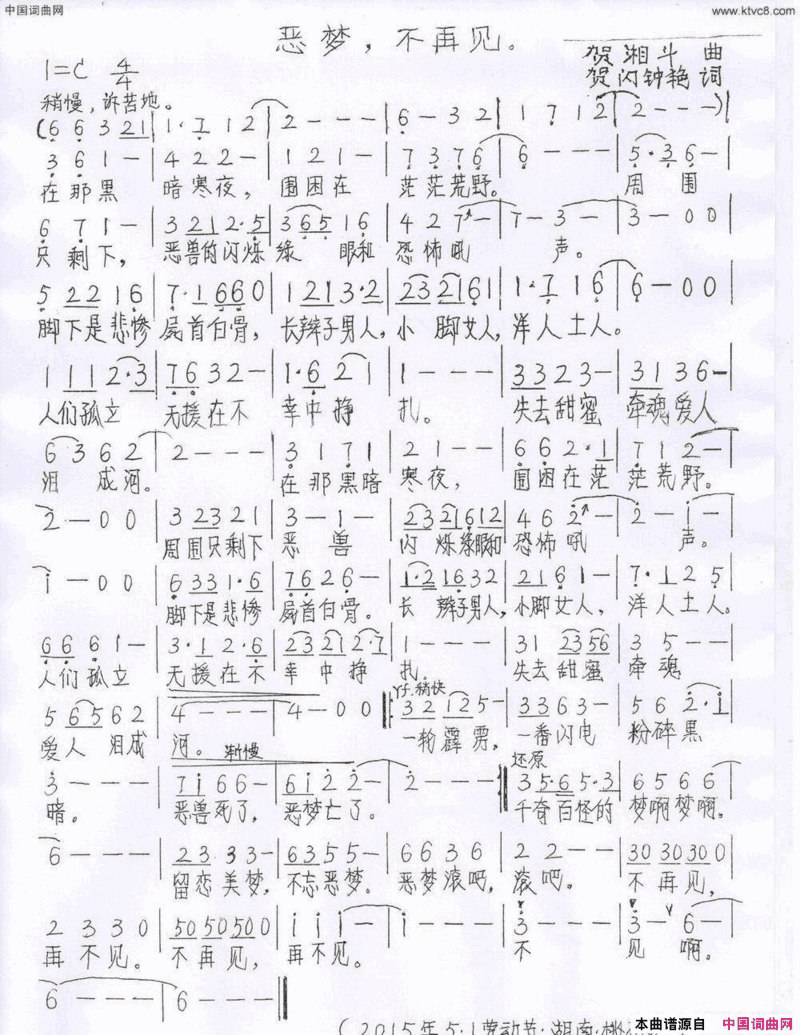 中国词曲网
www.ktvc8.com
恶梦，不再见。
贺湘斗 曲
1=C 4/4
贺闪钟艳 词
稍慢，诉苦地。
(6 6 3 21 | 1·7 12 | 2 - - - | 6 - 32 | 1 7 12 | 2 - - -)
3 6 1 - | 4 2 2 - | 1 2 1 - | 7 3 7 6 | 6 - - - | 5·3 6 -
在那黑 暗寒夜，围困在 茫茫荒野。 周围
6 7 1 - | 3 21 2·5 | 3 65 16 | 4 2 7 - | 7 - 3 - | 3 - 0 0
只剩下，恶兽的闪烁绿 眼和 恐怖吼 声。
5 22 16 | 7·1 660 | 1 21 3·2 | 23 21 61 | 1·7 16 | 6 - 0 0
脚下是悲惨 尸首白骨，长辫子男人，小 脚女人，洋人土人。
1 11 2·3 | 76 32 - | 1·6 21 | 1 - - - | 33 23 - | 31 36 -
人们孤立 无援在不 幸中挣 扎。 失去甜蜜 牵魂爱人
6 3 6 2 | 2 - - - | 3 1 7 1 | 2 1 - - | 6 6 2·1 | 7 1 2 -
泪 成河。 在那黑暗 寒夜， 围困在茫 茫荒野。
2 - 0 0 | 3 23 21 | 3 - 1 - | 23 216 12 | 4 6 2 - | 2 - 1 -
周围只剩下 恶 兽 闪 烁绿眼和 恐怖吼 声。
1 - 0 0 | 6 33 1·6 | 76 26 - | 1·2 16 32 | 21 61 - | 7·1 25
脚下是悲惨 尸首白骨。 长 辫子男人，小脚女人， 洋人土人。
66 61 - | 3·1 2·6 | 23 21 2·7 | 1 - - - | 31 23 56 | 3 5 - -
人们孤立 无援在不 幸中挣 扎， 失去甜蜜 牵魂
稍快
5 65 62 | 4 - - - | 4 - 0 0 | 32 12 5 - | 33 63 - | 56 2·1
爱人 泪成 河。 一轮霹雳， 一番闪电 粉碎黑
渐慢
还原
3 - - - | 7 1 66 - | 61 22 - | 2 - - - | 35·6 5·3 | 65 66
暗。 恶兽死了， 恶梦亡了。 千奇百怪的 梦啊梦啊。
6 - - - | 23 33 - | 63 55 - | 66 36 | 22 - - | 30 30 30 0
留恋美梦，不忘恶梦。恶梦滚吧，滚吧。 不再见，
2 3 3 0 | 50 50 50 0 | 1 1 1 - | 1 - - - | 3 - - - | 3 - 6 -
再不见。 不再见， 再不见。 不 见啊。
6 - - - | 6 - - -
(2015年5·1劳动节·湖南·
本曲谱源自
中国词曲网